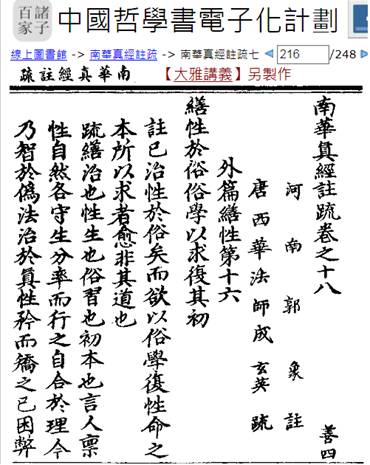 諸子百家 中國哲學書電子化計劃
線上圖書館 -> 南華真經註疏 -> 南華真經註疏七 216 /248
南華真經註疏 【大雅講義】另製作
南華真經註疏卷之十八 善四
河南郭象註
唐西華法師成玄英疏
外篇繕性第十六
繕性於俗俗學以求復其初
註已治性於俗矣而欲以俗學復性命之
本所以求者愈非其道也
疏繕治也性生也俗習也初本也言人禀
性自然各守生分率而行之自合於理今
乃智於偽法治於眞性矜而矯之已困弊